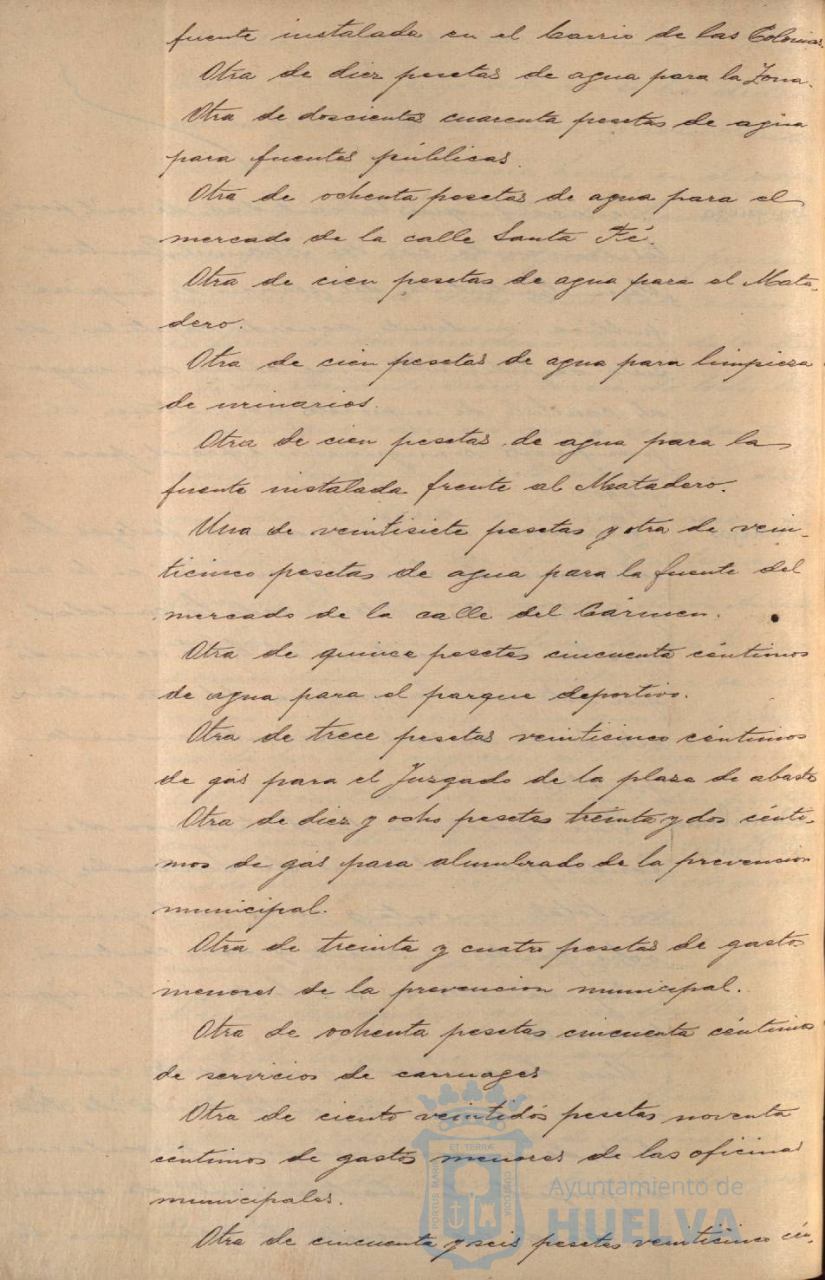 fuente instalada en el barrio de las Colonias.
Otra de diez pesetas de agua para la Zona.
Otra de doscientas cuarenta pesetas de agua
para fuentes públicas.
Otra de ochenta pesetas de agua para el
mercado de la calle Santa Fé.
Otra de cien pesetas de agua para el Mata-
dero.
Otra de cien pesetas de agua para limpieza
de urinarios.
Otra de cien pesetas de agua para la
fuente instalada frente al Matadero.
Una de veintisiete pesetas y otra de vein-
ticinco pesetas de agua para la fuente del
mercado de la calle del Cármen.
Otra de quince pesetas cincuenta céntimos
de agua para el parque deportivo.
Otra de trece pesetas veinticinco céntimos
de gas para el Juzgado de la plaza de abasto
Otra de diez y ocho pesetas treinta y dos cénti-
mos de gas para alumbrado de la prevencion
municipal.
Otra de treinta y cuatro pesetas de gastos
menores de la prevencion municipal.
Otra de ochenta pesetas cincuenta céntimos
de servicios de carruages
Otra de ciento veintidós pesetas noventa
céntimos de gastos menores de las oficinas
municipales.
Otra de cincuenta y seis pesetas veinticinco cén-
Ayuntamiento de
HUELVA